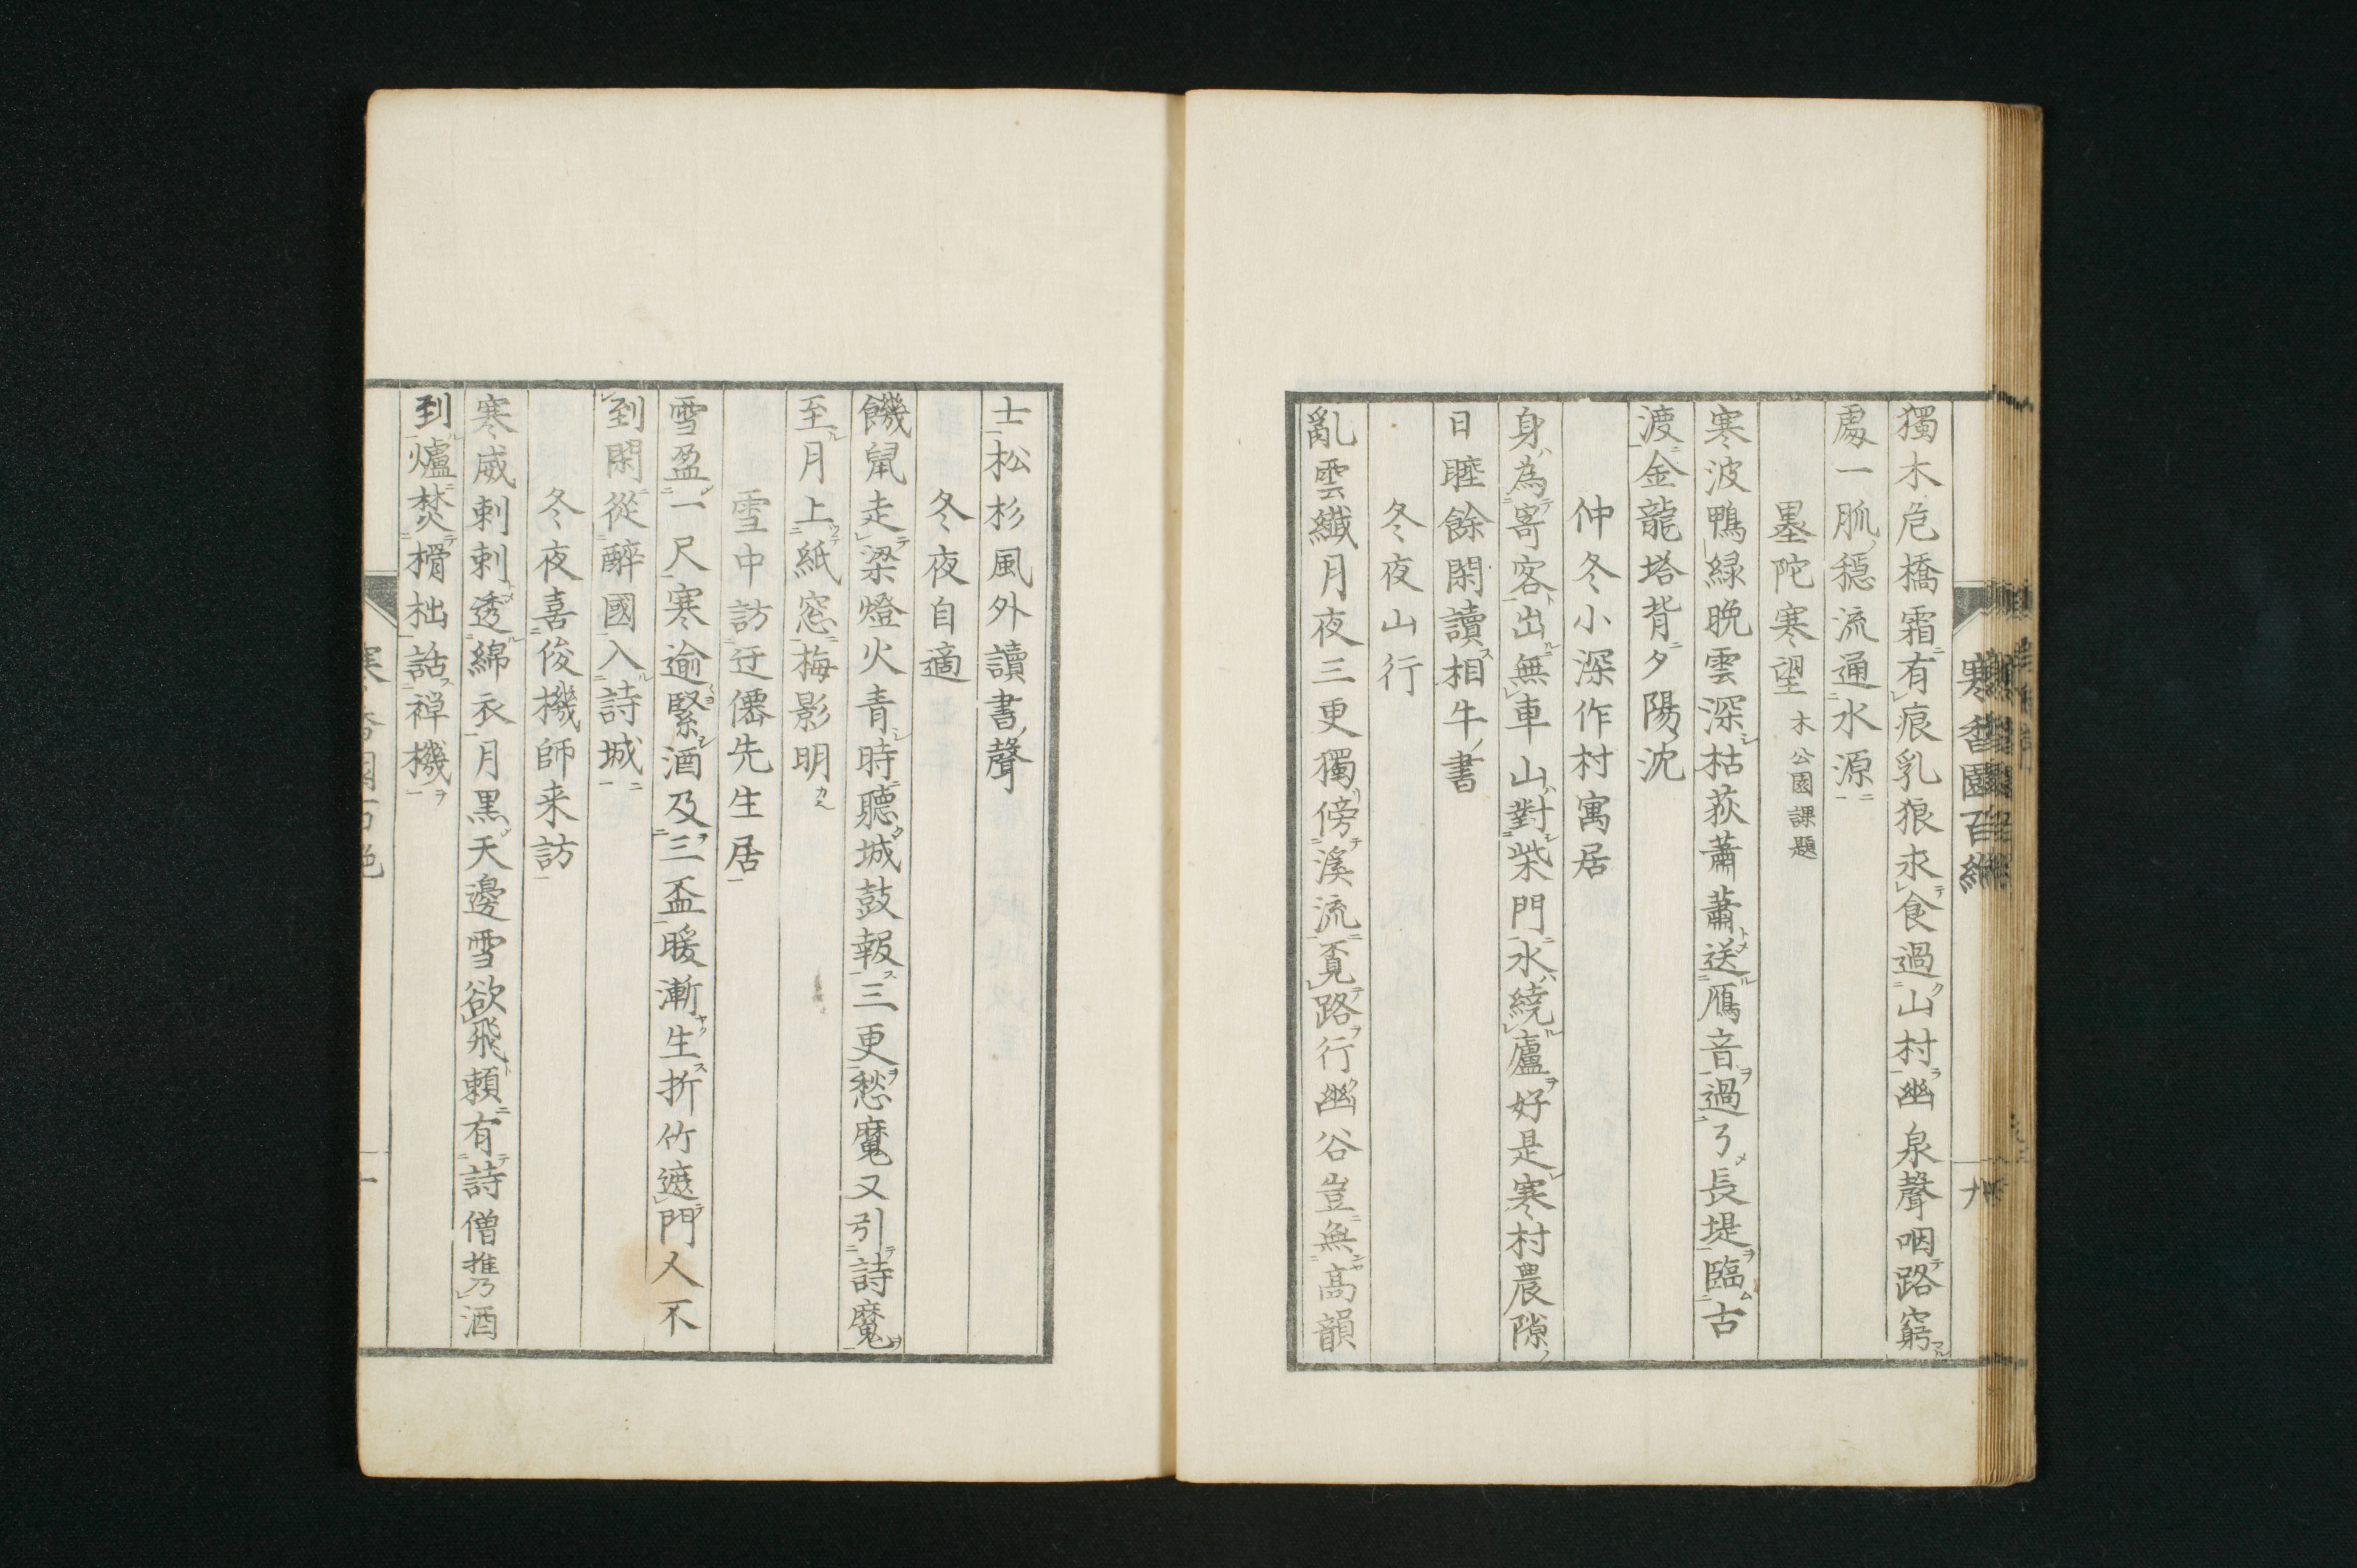 寒香園百絶
獨木危橋霜有痕乳狼求食過山村幽泉聲咽路窮
處一脈穏流通水源
墨陀寒望 木公園課題
寒波鴨緑晩雲深枯荻蕭蕭送雁音過了長堤臨古
渡金龍塔背夕陽沈
仲冬小深作村寓居
身為寄客出無車山對柴門水繞廬好是寒村農隙
日睡餘閑讀相牛書
冬夜山行
亂雲纖月夜三更獨傍溪流覔路行幽谷豈無高韻
士松杉風外讀書聲
冬夜自適
饑鼠走梁燈火青時聽城鼓報三更愁魔又引詩魔
至月上紙窓梅影明
雪中訪迂僊先生居
雪盈一尺寒逾緊酒及三盃暖漸生折竹遮門人不
到閑從醉國入詩城
冬夜喜俊機師来訪
寒威刺刺透綿衣月黒天邊雪欲飛頼有詩僧携酒
到爐焚榾柮話禅機
寒香園百絶